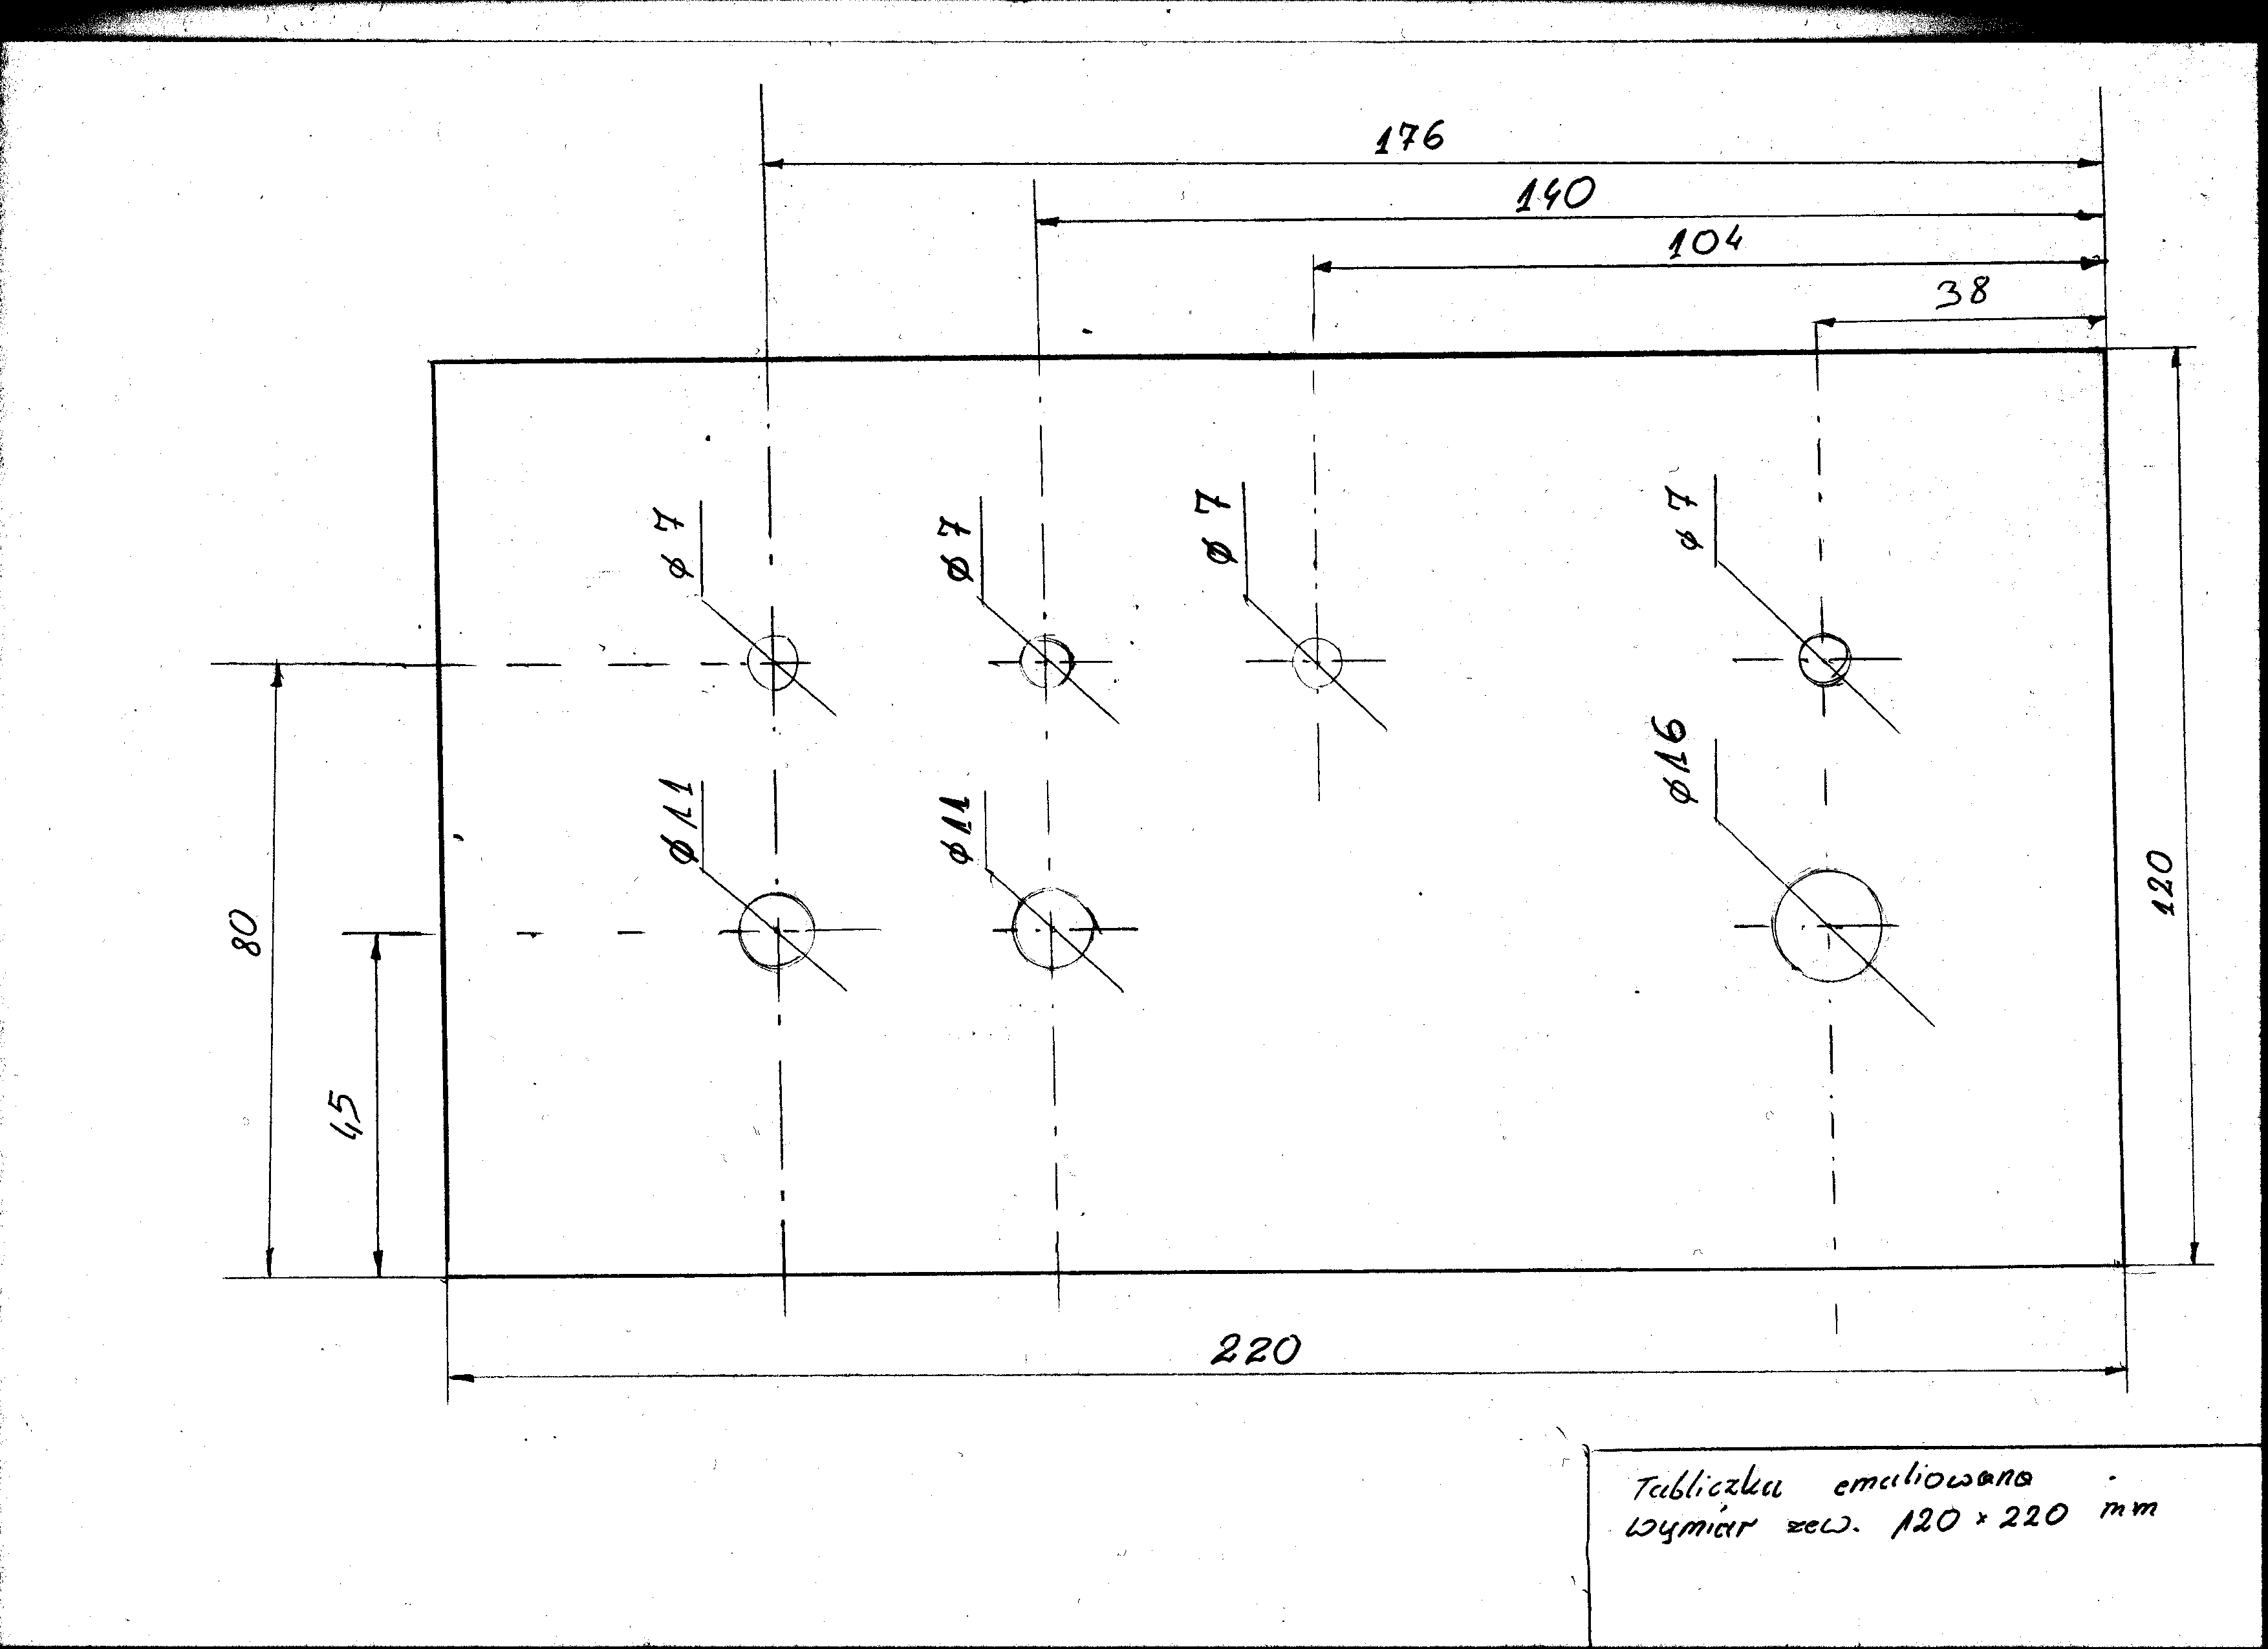 176
140
104
38
ø 7
ø 7
ø 7
ø 7
ø 11
ø 11
ø 16
80
45
120
220
Tabliczka emaliowana
wymiar zew. 120 × 220 mm